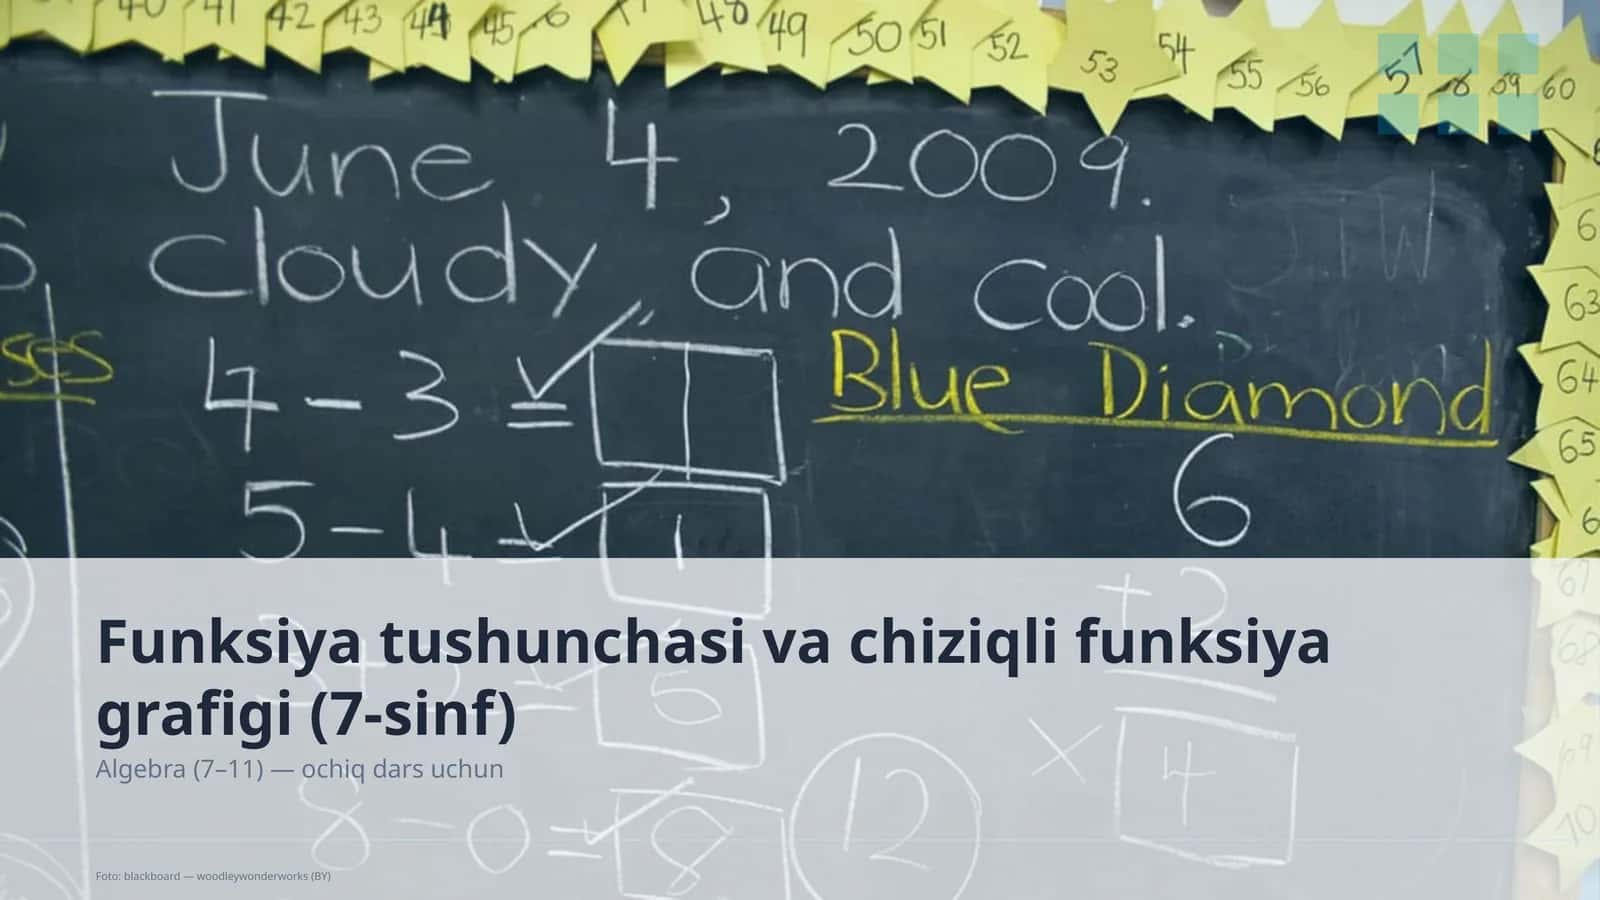 40 41 42 43 44 45 48 49 50 51 52 53 54 55 56 57 58 59 60
June 4, 2009.
Cloudy and cool.
ses
4 - 3 =
Blue Diamond
63
64
65
6
5 - 4 = 1
+2
67
68
Funksiya tushunchasi va chiziqli funksiya
grafigi (7-sinf)
5
69
Algebra (7–11) — ochiq dars uchun
× 4
8 - 0 = 8
12
70
Foto: blackboard — woodleywonderworks (BY)